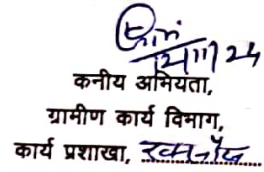 कनीय अभियता,
ग्रामीण कार्य विभाग,
कार्य प्रशाखा,